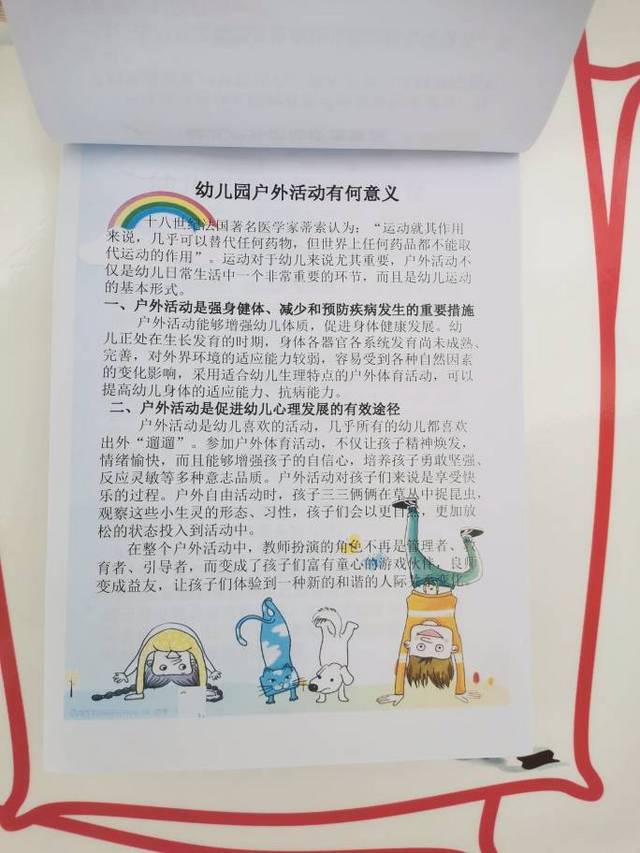 幼儿园户外活动有何意义
十八世纪法国著名医学家蒂索认为：“运动就其作用
来说，几乎可以替代任何药物，但世界上任何药品都不能取
代运动的作用”。运动对于幼儿来说尤其重要，户外活动不
仅是幼儿日常生活中一个非常重要的环节，而且是幼儿运动
的基本形式。
一、户外活动是强身健体、减少和预防疾病发生的重要措施
户外活动能够增强幼儿体质，促进身体健康发展。幼
儿正处在生长发育的时期，身体各器官各系统发育尚未成熟、
完善，对外界环境的适应能力较弱，容易受到各种自然因素
的变化影响，采用适合幼儿生理特点的户外体育活动，可以
提高幼儿身体的适应能力、抗病能力。
二、户外活动是促进幼儿心理发展的有效途径
户外活动是幼儿喜欢的活动，几乎所有的幼儿都喜欢
出外“遛遛”。参加户外体育活动，不仅让孩子精神焕发，
情绪愉快，而且能够增强孩子的自信心，培养孩子勇敢坚强、
反应灵敏等多种意志品质。户外活动对孩子们来说是享受快
乐的过程。户外自由活动时，孩子三三俩俩在草丛中捉昆虫，
观察这些小生灵的形态、习性，孩子们会以更自然，更加放
松的状态投入到活动中。
在整个户外活动中，教师扮演的角色不再是管理者、
育者、引导者，而变成了孩子们富有童心的游戏伙伴，良师
变成益友，让孩子们体验到一种新的和谐的人际关系变化